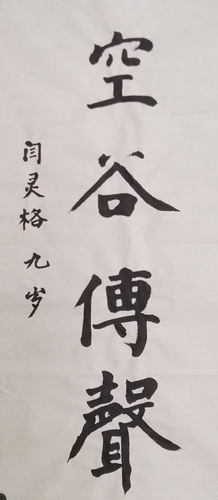 空谷傳聲
闫灵格 九岁